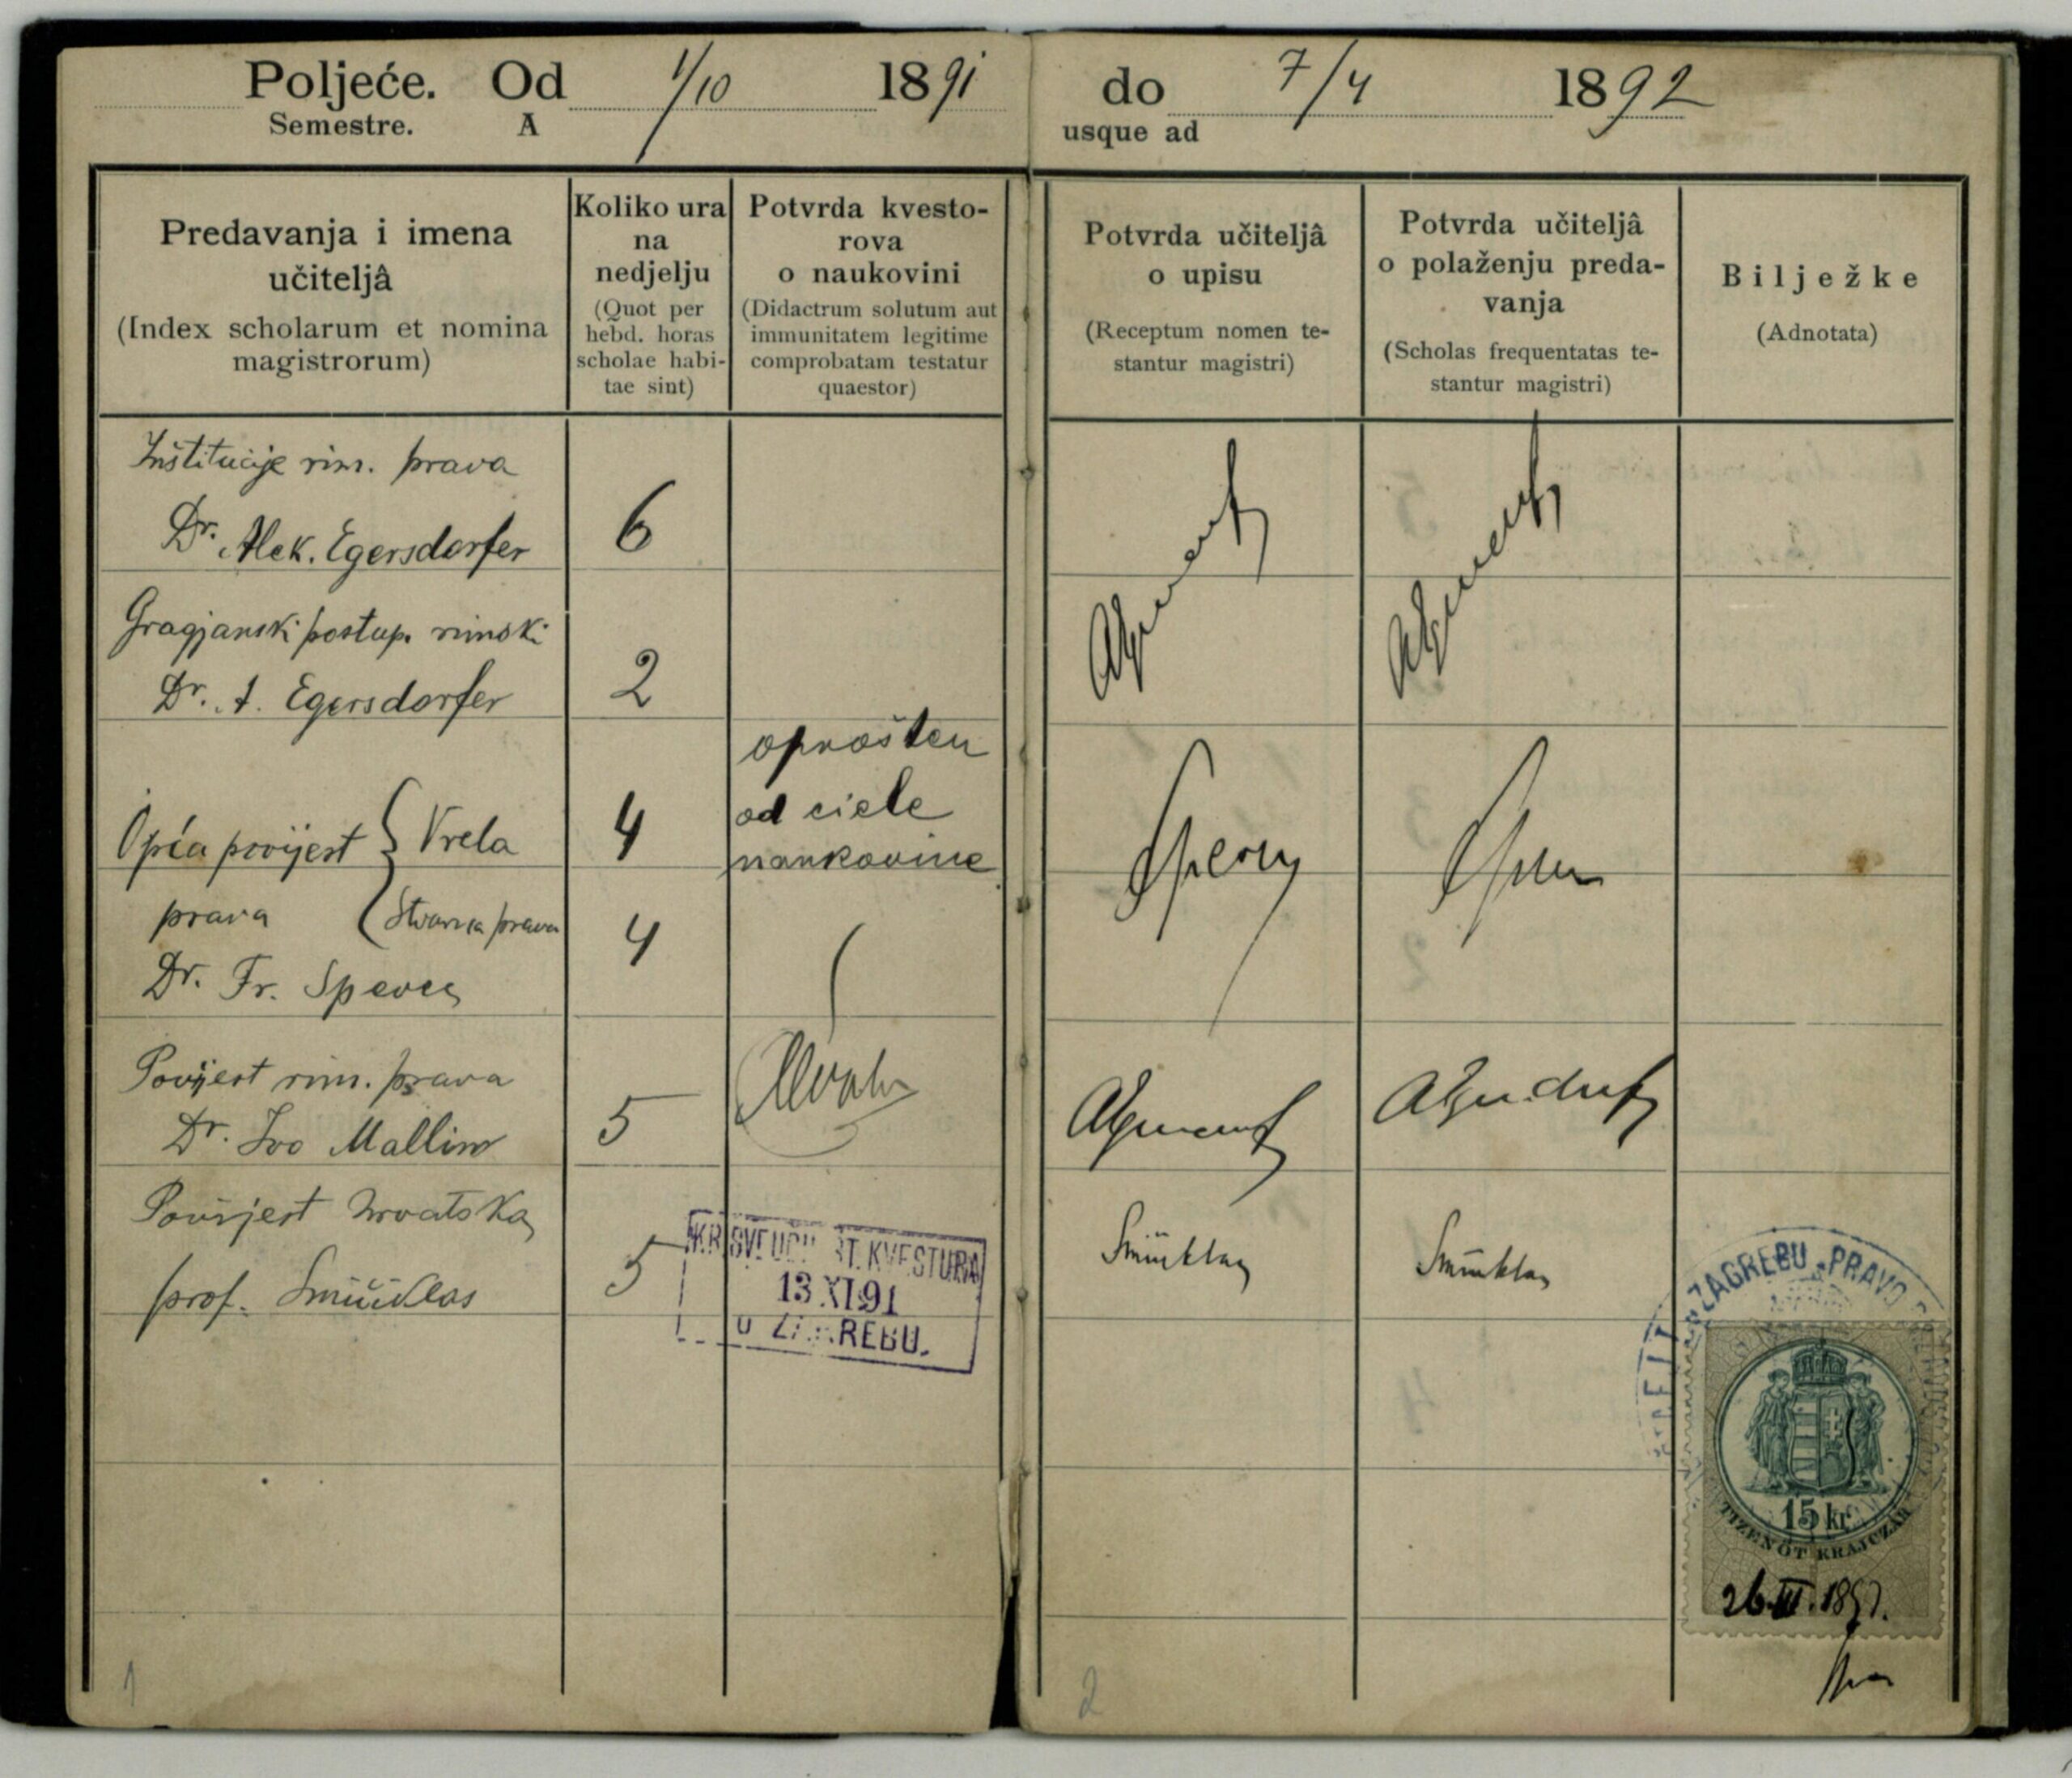 Poljeće. Od 1/10 1891
Semestre. A
Predavanja i imena
učiteljâ
(Index scholarum et nomina
magistrorum)
Koliko ura
na
nedjelju
(Quot per
hebd. horas
scholae habi-
tae sint)
Potvrda kvesto-
rova
o naukovini
(Didactrum solutum aut
immunitatem legitime
comprobatam testatur
quaestor)
Institucije rim. prava
Dr. Alek. Egersdorfer
6
Gragjanski postup. rimski
Dr. A. Egersdorfer
2
oprošten
od ciele
naukovine
Opća povijest { Vrela
4
prava { Stvarna prava
4
Dr. Fr. Spevec
Povijest rim. prava
Dr. Ivo Mallin
5
Povijest hrvatska
prof. Smičiklas
5
KR. SVEUČILIŠT. KVESTURA
13 XI 91
U ZAGREBU.
1
do 7/4 1892
usque ad
Potvrda učiteljâ
o upisu
(Receptum nomen te-
stantur magistri)
Potvrda učiteljâ
o polaženju preda-
vanja
(Scholas frequentatas te-
stantur magistri)
Bilježke
(Adnotata)
Spevec
Smičiklas
Smičiklas
ZAGREBU PRAVO
15 kr.
TIZENÖT KRAJCZÁR
26.III.1892.
2